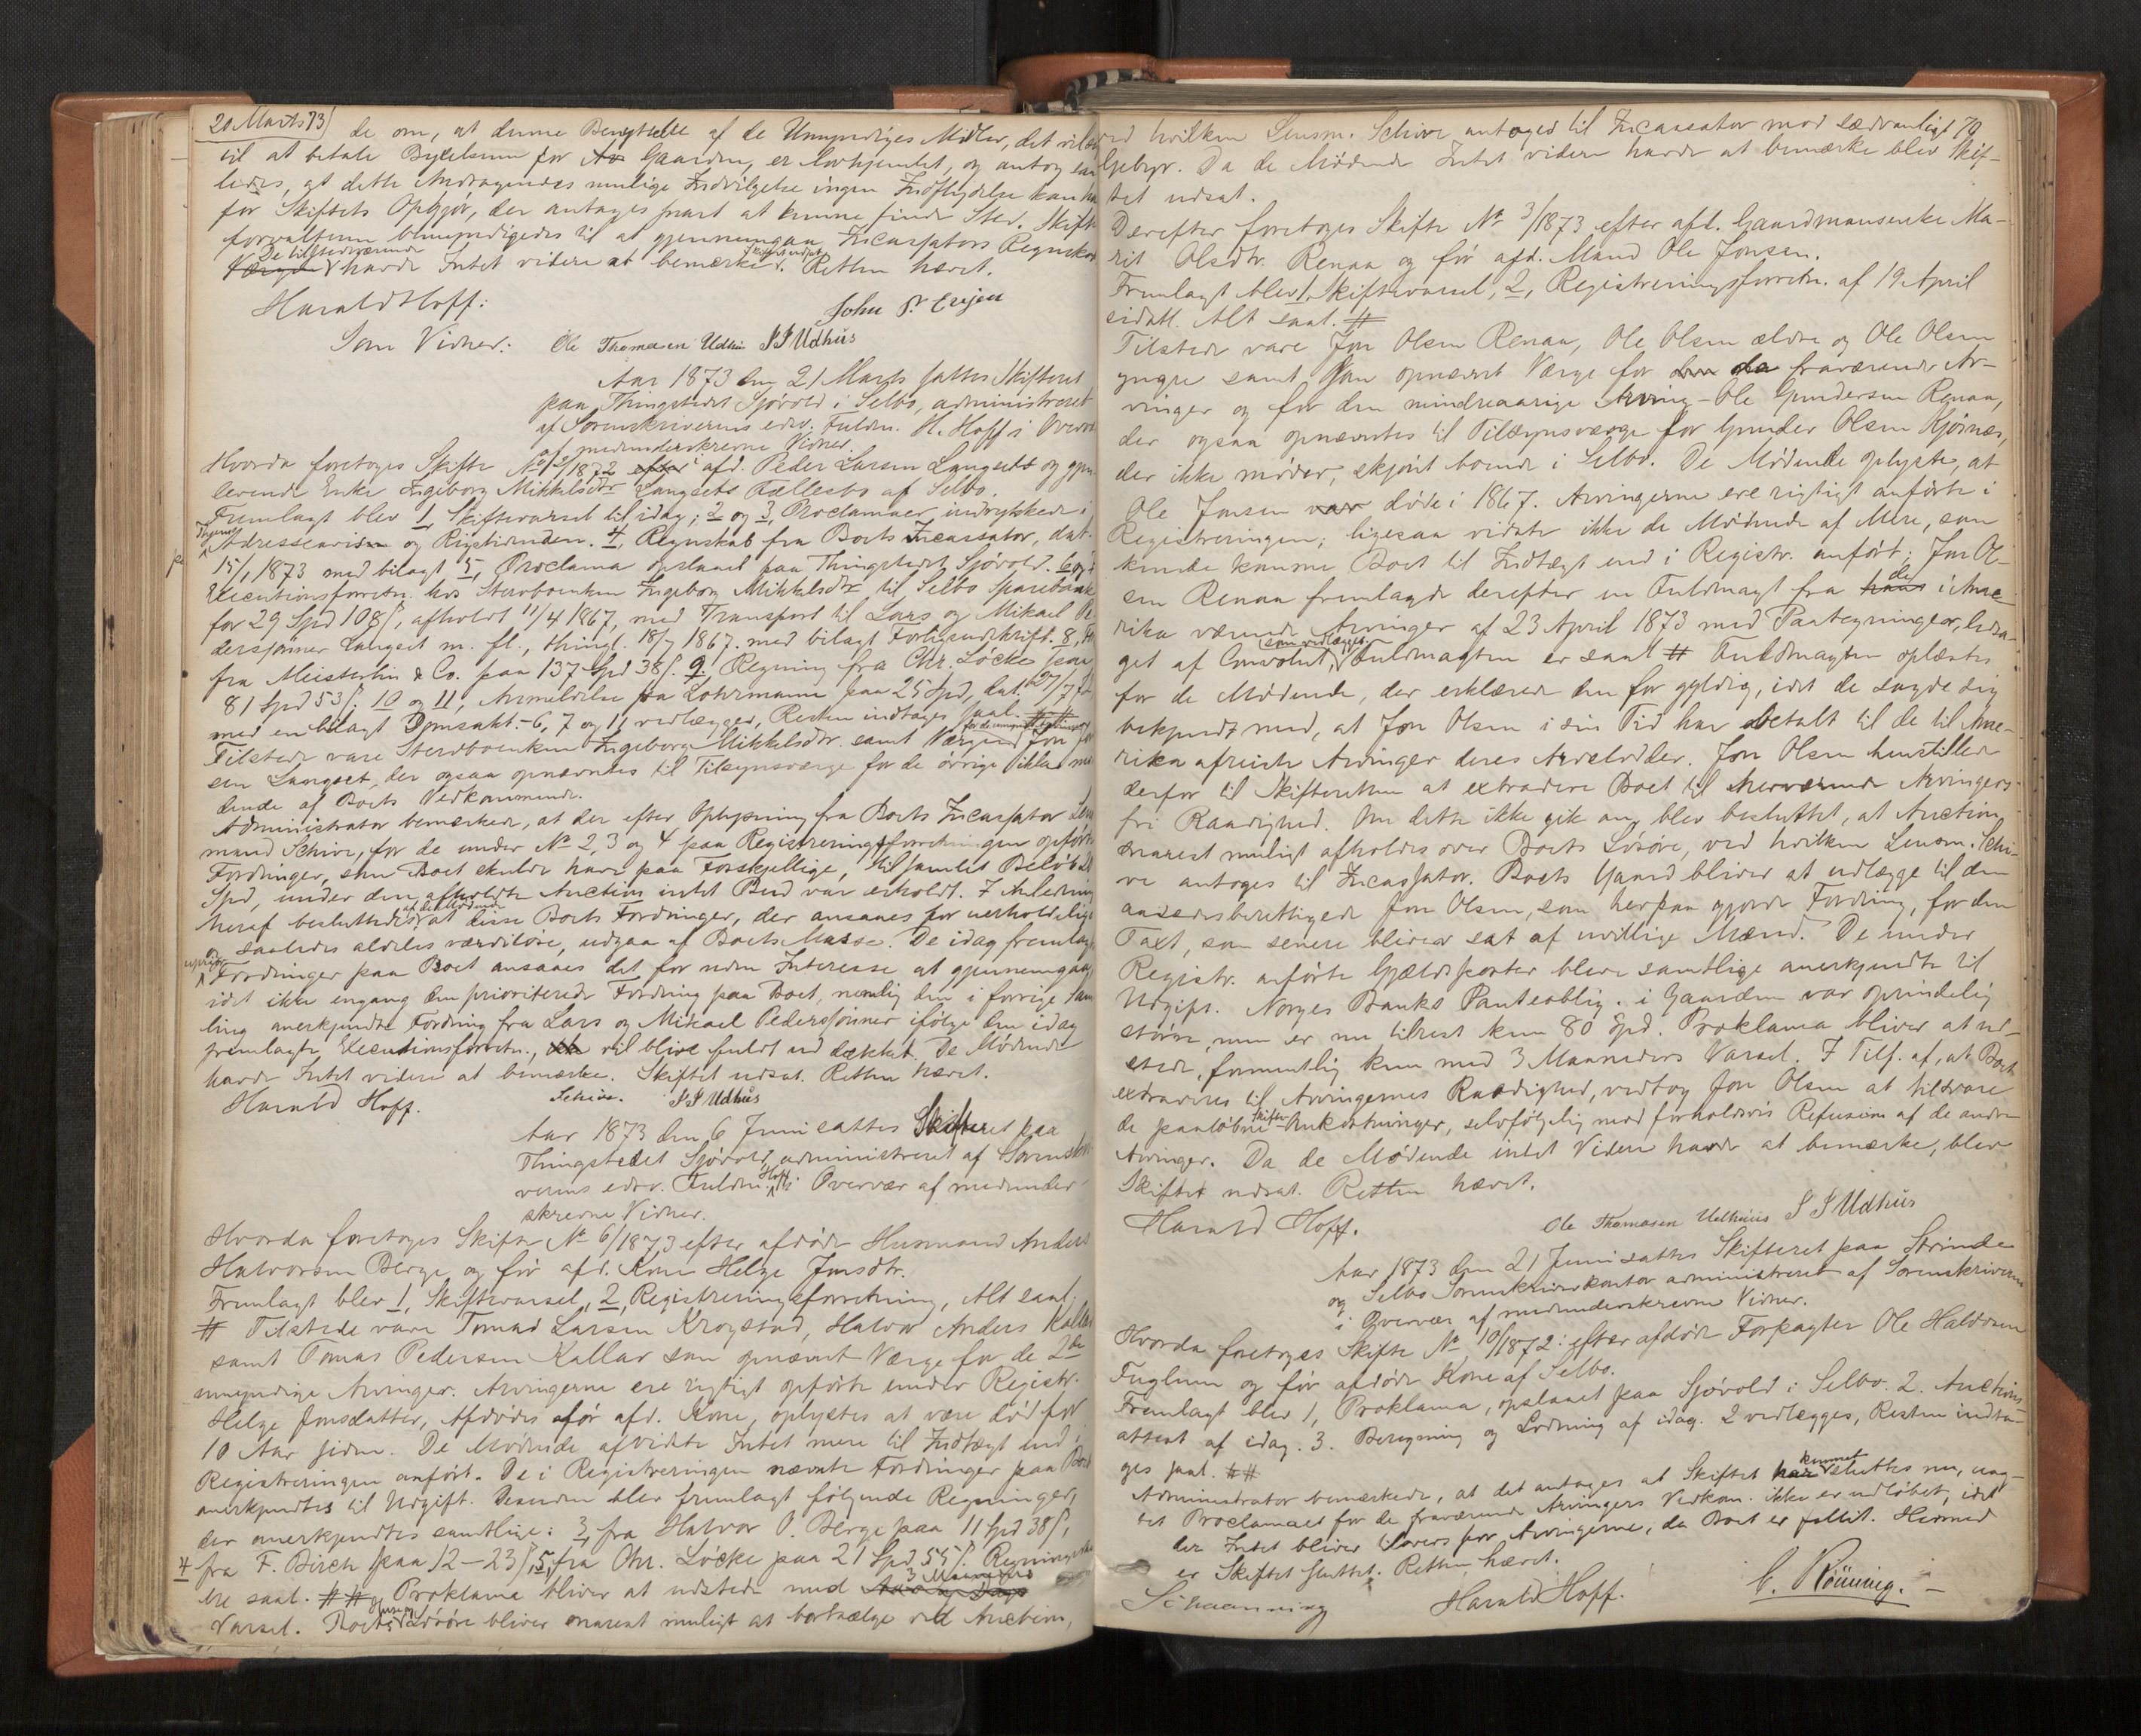 20 Marts 73) de om, at denne Benyttelse af de Umyndiges Midler, det vil
til at betale Bygselsum for Gaarden, er lovhjemlet, og antog
ledes, at dette Andragendes mulige Indvilgelse ingen Indflydelse kan
for Skiftets Opgjør, der antages snart at kunne finde Sted. Skifte
forvalteren bemyndigedes til at gjennemgaa Incassators Regnskab
De tilstedeværende Skiftet udsat
Værgen havde Intet videre at bemærke. Retten hævet.
Harald Hoff. John P. Evjen
Som Vidner: Ole Thomasen Udhuus J J Udhuus
Aar 1873 den 21 Marts sattes Skifteret
paa Thingstedet Sjøvold i Selbo, administreret
af Sorenskriverens edsv. Fuldm. H. Hoff i Overvær
af medunderskrevne Vidner.
Hvorda foretoges Skifte No /1872 efter afd. Peder Larsen Langseth og gjen
levende Enke Ingeborg Mikkelsdtr Langseth Fællesbo af Selbo.
Fremlagt blev 1, Skiftevarsel til idag; 2 og 3, Proclamaer indrykkede i
Adresseavisen og Rigstidenden. 4, Regnskab fra Boets Incassator, dat.
15/1 1873 med bilagt 5, Proclama opslaaet paa Thingstedet Sjøvold. 6 og 7
Executionsforretn. hos Stervboenken Ingeborg Mikkelsdtr til Selbo Sparebank
for 29 Spd 108 ß, afholdt 11/4 1867, med Transport til Lars og Mikael Pe
derssønner Langset m. fl., thingl. 18/7 1867. med bilagt Forligsudskrift. 8,
fra Meisterlin & Co. paa 137 Spd 38 ß. 9, Regning fra Chr. Løcke paa
81 Spd 53 ß; 10 og 11, Anmeldelse fra Lohrmann paa 25 Spd, dat. 27/7
med en bilagt Domsakt. 6, 7 og 11 vedlægges, Resten indtages saal.
Tilstede vare Stervboenken Ingeborg Mikkelsdtr. samt Værgen Jon
sen Langset, der ogsaa opnævntes til Tilsynsværge for de øvrige ikke mø
dende af Boets Vedkommende.
Administrator bemærkede, at der efter Oplysning fra Boets Incassator Lens
mand Schive, for de under No 2, 3 og 4 paa Registreringsforretningen opførte
Fordringer, som Boet skulde have paa Forskjellige, til samlet Beløb
Spd, under den afholdte Auction intet Bud var erholdt. I Anledning
af de Mødende
heraf besluttedes at disse Boets Fordringer, der ansaaes for uerholdelige
og saaledes aldeles værdiløse, udgaa af Boets Masse. De idag fremlagte
uprior. Fordringer paa Boet ansaaes det for uden Interesse at gjennemgaa,
idet ikke engang den prioriterede Fordring paa Boet, nemlig den i forrige Sam
ling anerkjendte Fordring fra Lars og Mikael Pederssønner ifølge den idag
fremlagte Executionsforretn., vil blive fuldt ud dækket. De Mødende
havde Intet videre at bemærke. Skiftet udsat. Retten hævet.
Harald Hoff. Schive. J J Udhuus
Aar 1873 den 6 Juni sattes Skifteret paa
Thingstedet Sjøvold, administreret af Sorenskri
verens edsv. Fuldm. Hoff i Overvær af medunder
skrevne Vidner.
Hvorda foretoges Skifte No 6/1873 efter afdøde Husmand Anders
Halvorsen Berge og før afd. Kone Helge Jonsdtr.
Fremlagt blev 1, Skiftevarsel, 2, Registreringsforretning, Alt saal.
# Tilstede vare Tomas Larsen Krogstad, Halvor Anders Kallar
samt Tomas Pedersen Kallar som opnævnt Værge for de 2de
umyndige Arvinger. Arvingerne ere rigtigt opførte under Registr.
Helge Jonsdatter, Afdødes før afd. Kone, oplystes at være død for
10 Aar siden. De Mødende afvidste Intet mere til Indtægt end i
Registreringen anført. De i Registreringen nævnte Fordringer paa Boet
anerkjendtes til Udgift. Desuden blev fremlagt følgende Regninger,
der anerkjendtes samtlige: 3, fra Halvor O. Berge paa 11 Spd 38 ß,
4 fra F. Birch paa 12 – 23 ß, 5, fra Chr. Løcke paa 21 Spd 55 ß. Regningerne
3 Maaneders
ere saal. ## Proklama bliver at udstede med Aar og Dags
Varsel. Boets Løsøre bliver snarest muligt at bortsælge ved Auction,
70
ved hvilken Lensm. Schive antoges til Incassator mod sædvanligt
Gebyr. Da de Mødende Intet videre havde at bemærke blev Skif-
tet udsat.
Derefter foretoges Skifte No 3/1873 efter afd. Gaardmandsenke Ma-
rit Olsdtr. Renaa og før afd. Mand Ole Jonsen.
Fremlagt blev 1, Skiftevarsel, 2, Registreringsforretn. af 19 April
sidstl. Alt saal. #
Tilstede vare Jon Olsen Renaa, Ole Olsen ældre og Ole Olsen
yngre samt som opnævnt Værge for de fraværende Ar-
vinger og for den mindreaarige Arving Ole Gundersen Renaa,
der ogsaa opnævntes til Tilsynsværge for Gunder Olsen Kjøsnæs,
der ikke møder, skjønt boende i Selbo. De Mødende oplyste, at
Ole Jonsen var døde i 1867. Arvingerne ere rigtigt anførte i
Registreringen; ligesaa vidste ikke de Mødende af Mere, som
kunde komme Boet til Indtægt end i Registr. anført. Jon Ol-
sen Renaa fremlagde derefter en Fuldmagt fra de i Ame
rika værende Arvinger af 23 April 1873 med Paategninger, ledsa-
som vedlægges
get af Convolut, Fuldmagten er saal # Fuldmagten oplæstes
for de Mødende, der erklærede den for gyldig, idet de sagde sig
bekjendt med, at Jon Olsen i sin Tid har betalt til de til Ame-
rika afreiste Arvinger deres Arvelodder. Jon Olsen henstillede
derfor til Skifteretten at extradere Boet til herværende Arvingers
fri Raadighed. Om dette ikke gik an, blev besluttet, at Auction
snarest muligt afholdes over Boets Løsøre, ved hvilken Lensm. Schi-
ve antoges til Incassator. Boets Gaard bliver at udlægge til den
aasædesberettigede Jon Olsen, som herpaa gjorde Fordring, for den
Taxt, som senere bliver sat af uvillige Mænd. De under
Registr. anførte Gjældsposter bleve samtlige anerkjendte til
Udgift. Norges Banks Panteoblig. i Gaarden var oprindelig
større, men er nu tilrest kun 80 Spd. Proklama bliver at ud-
stede, formentlig kun med 3 Maaneders Varsel. I Tilf. af, at Boet
extraderes til Arvingernes Raadighed, vedtog Jon Olsen at tilsvare
de paaløbne Skifte-Omkostninger, selvfølgelig mod forholdsvis Refusion af de andre
Arvinger. Da de Mødende intet Videre havde at bemærke, blev
Skiftet udsat. Retten hævet.
Harald Hoff. Ole Thomasen Udhuus J J Udhuus
Aar 1873 den 21 Juni sattes Skifteret paa Strinde
og Selbo Sorenskriverkontor administreret af Sorenskriveren
i Overvær af medunderskrevne Vidner.
Hvorda foretoges Skifte No 10/1872: efter afdøde Forpagter Ole Haldorsen
Fuglem og før afdøde Kone af Selbo.
Fremlagt blev 1, Proklama, opslaaet paa Sjøvold i Selbo. 2. Auctions-
attest af idag. 3. Beregning og Lodning af idag. 2 vedlægges, Resten indta-
ges saal. ##
kunne
Administrator bemærkede, at det antages at Skiftet har sluttes nu, uag-
tet Proclamaet for de fraværende Arvingers Vedkom. ikke er udløbet, idet
der Intet bliver tilovers for Arvingerne, da Boet er fallit. Hermed
er Skiftet sluttet. Retten hævet.
Schaanning Harald Hoff. C. Rönning.